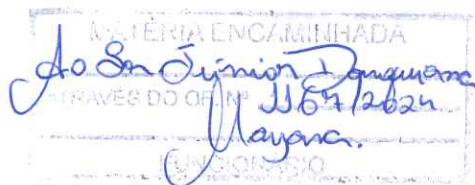 MATÉRIA ENCAMINHADA
Ao Sr. Júnior
ATRAVÉS DO OF. Nº 1167/2024
Mayara.
FUNCIONÁRIO